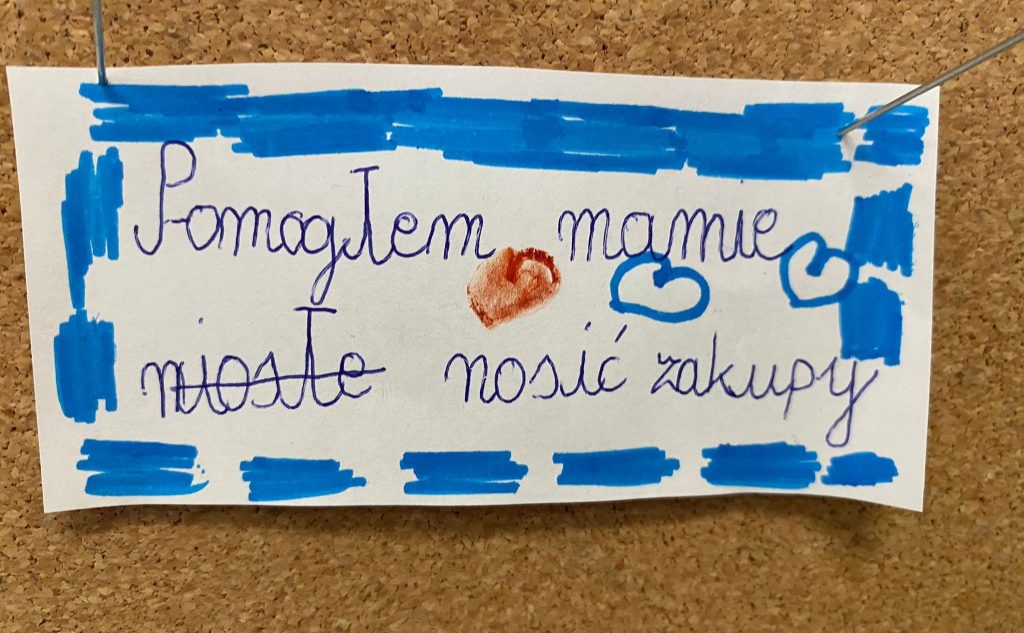 Pomogłem mamie
niosłe nosić zakupy